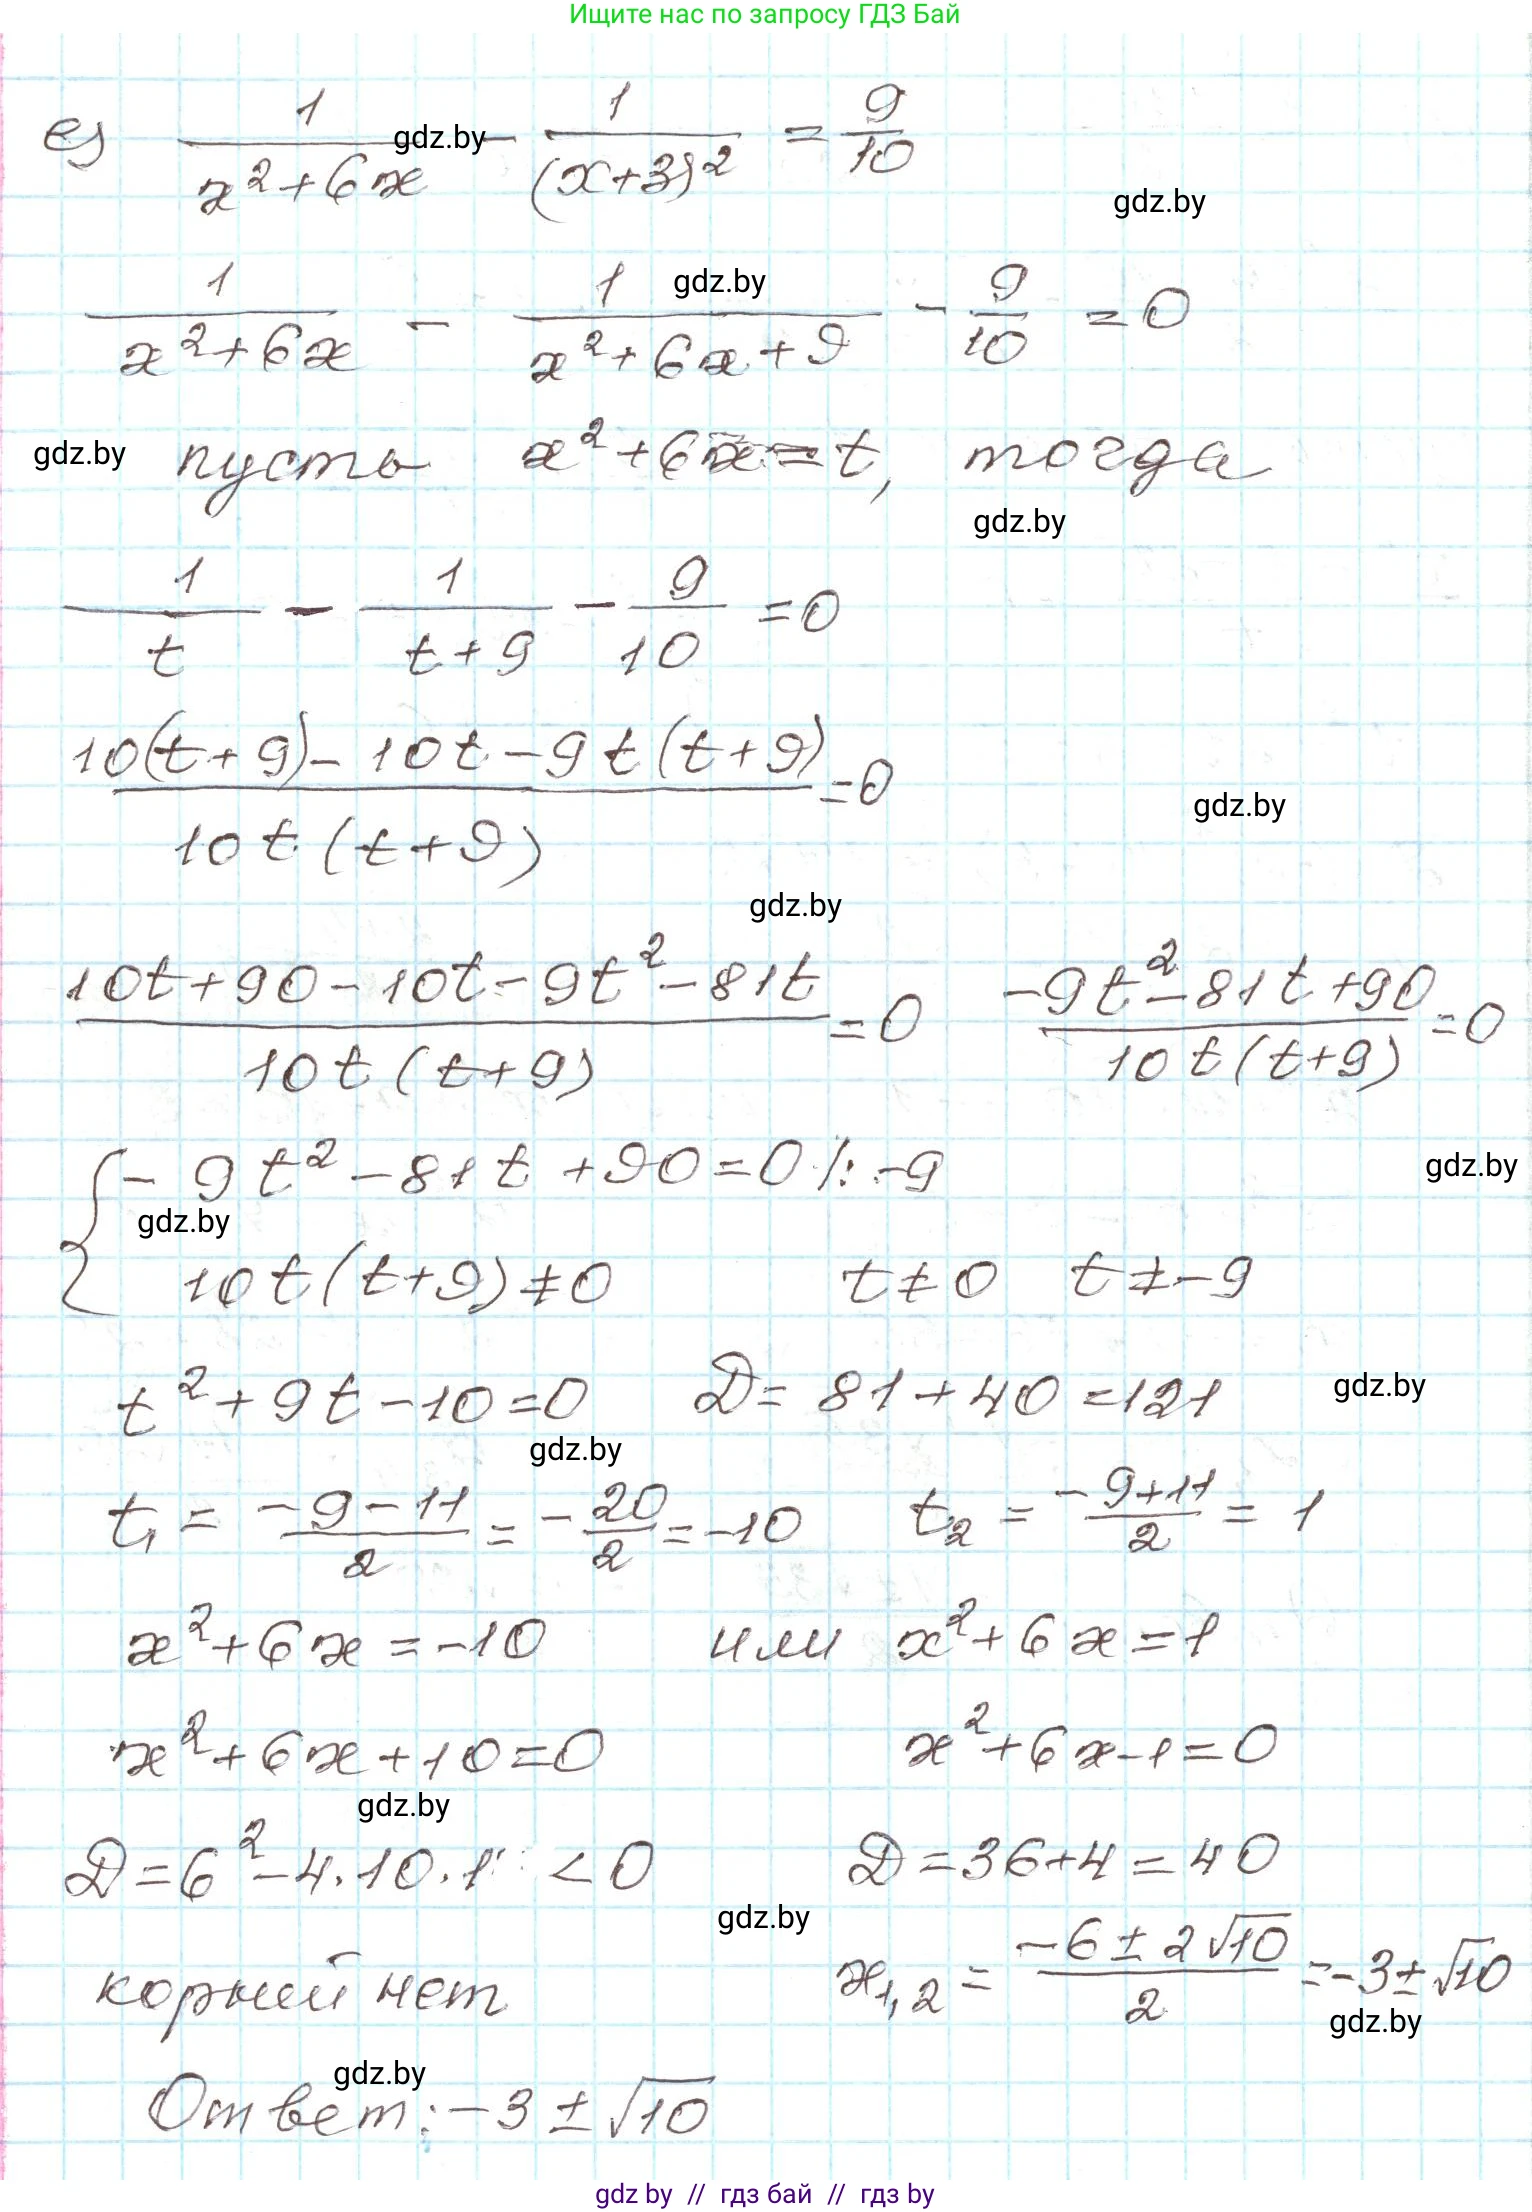 Ищите нас по запросу ГДЗ Бай
е) 1/(x²+6x) - 1/(x+3)² = 9/10
gdz.by
gdz.by
1/(x²+6x) - 1/(x²+6x+9) - 9/10 = 0
gdz.by
gdz.by пусть x²+6x=t, тогда
gdz.by
1/t - 1/(t+9) - 9/10 = 0
(10(t+9) - 10t - 9t(t+9))/(10t(t+9)) = 0
gdz.by
gdz.by
(10t+90-10t-9t²-81t)/(10t(t+9)) = 0 (-9t²-81t+90)/(10t(t+9)) = 0
{ -9t²-81t+90=0 /: -9
gdz.by
gdz.by
10t(t+9)≠0 t≠0 t≠-9
t²+9t-10=0 D=81+40=121
gdz.by
gdz.by
t₁ = (-9-11)/2 = -20/2 = -10 t₂ = (-9+11)/2 = 1
x²+6x=-10 или x²+6x=1
x²+6x+10=0 x²+6x-1=0
gdz.by
D=6²-4·10·1 <0 D=36+4=40
gdz.by
корний нет x₁,₂ = (-6±2√10)/2 = -3±√10
gdz.by
gdz.by
Ответ: -3±√10
gdz by // гдз бай // гдз by